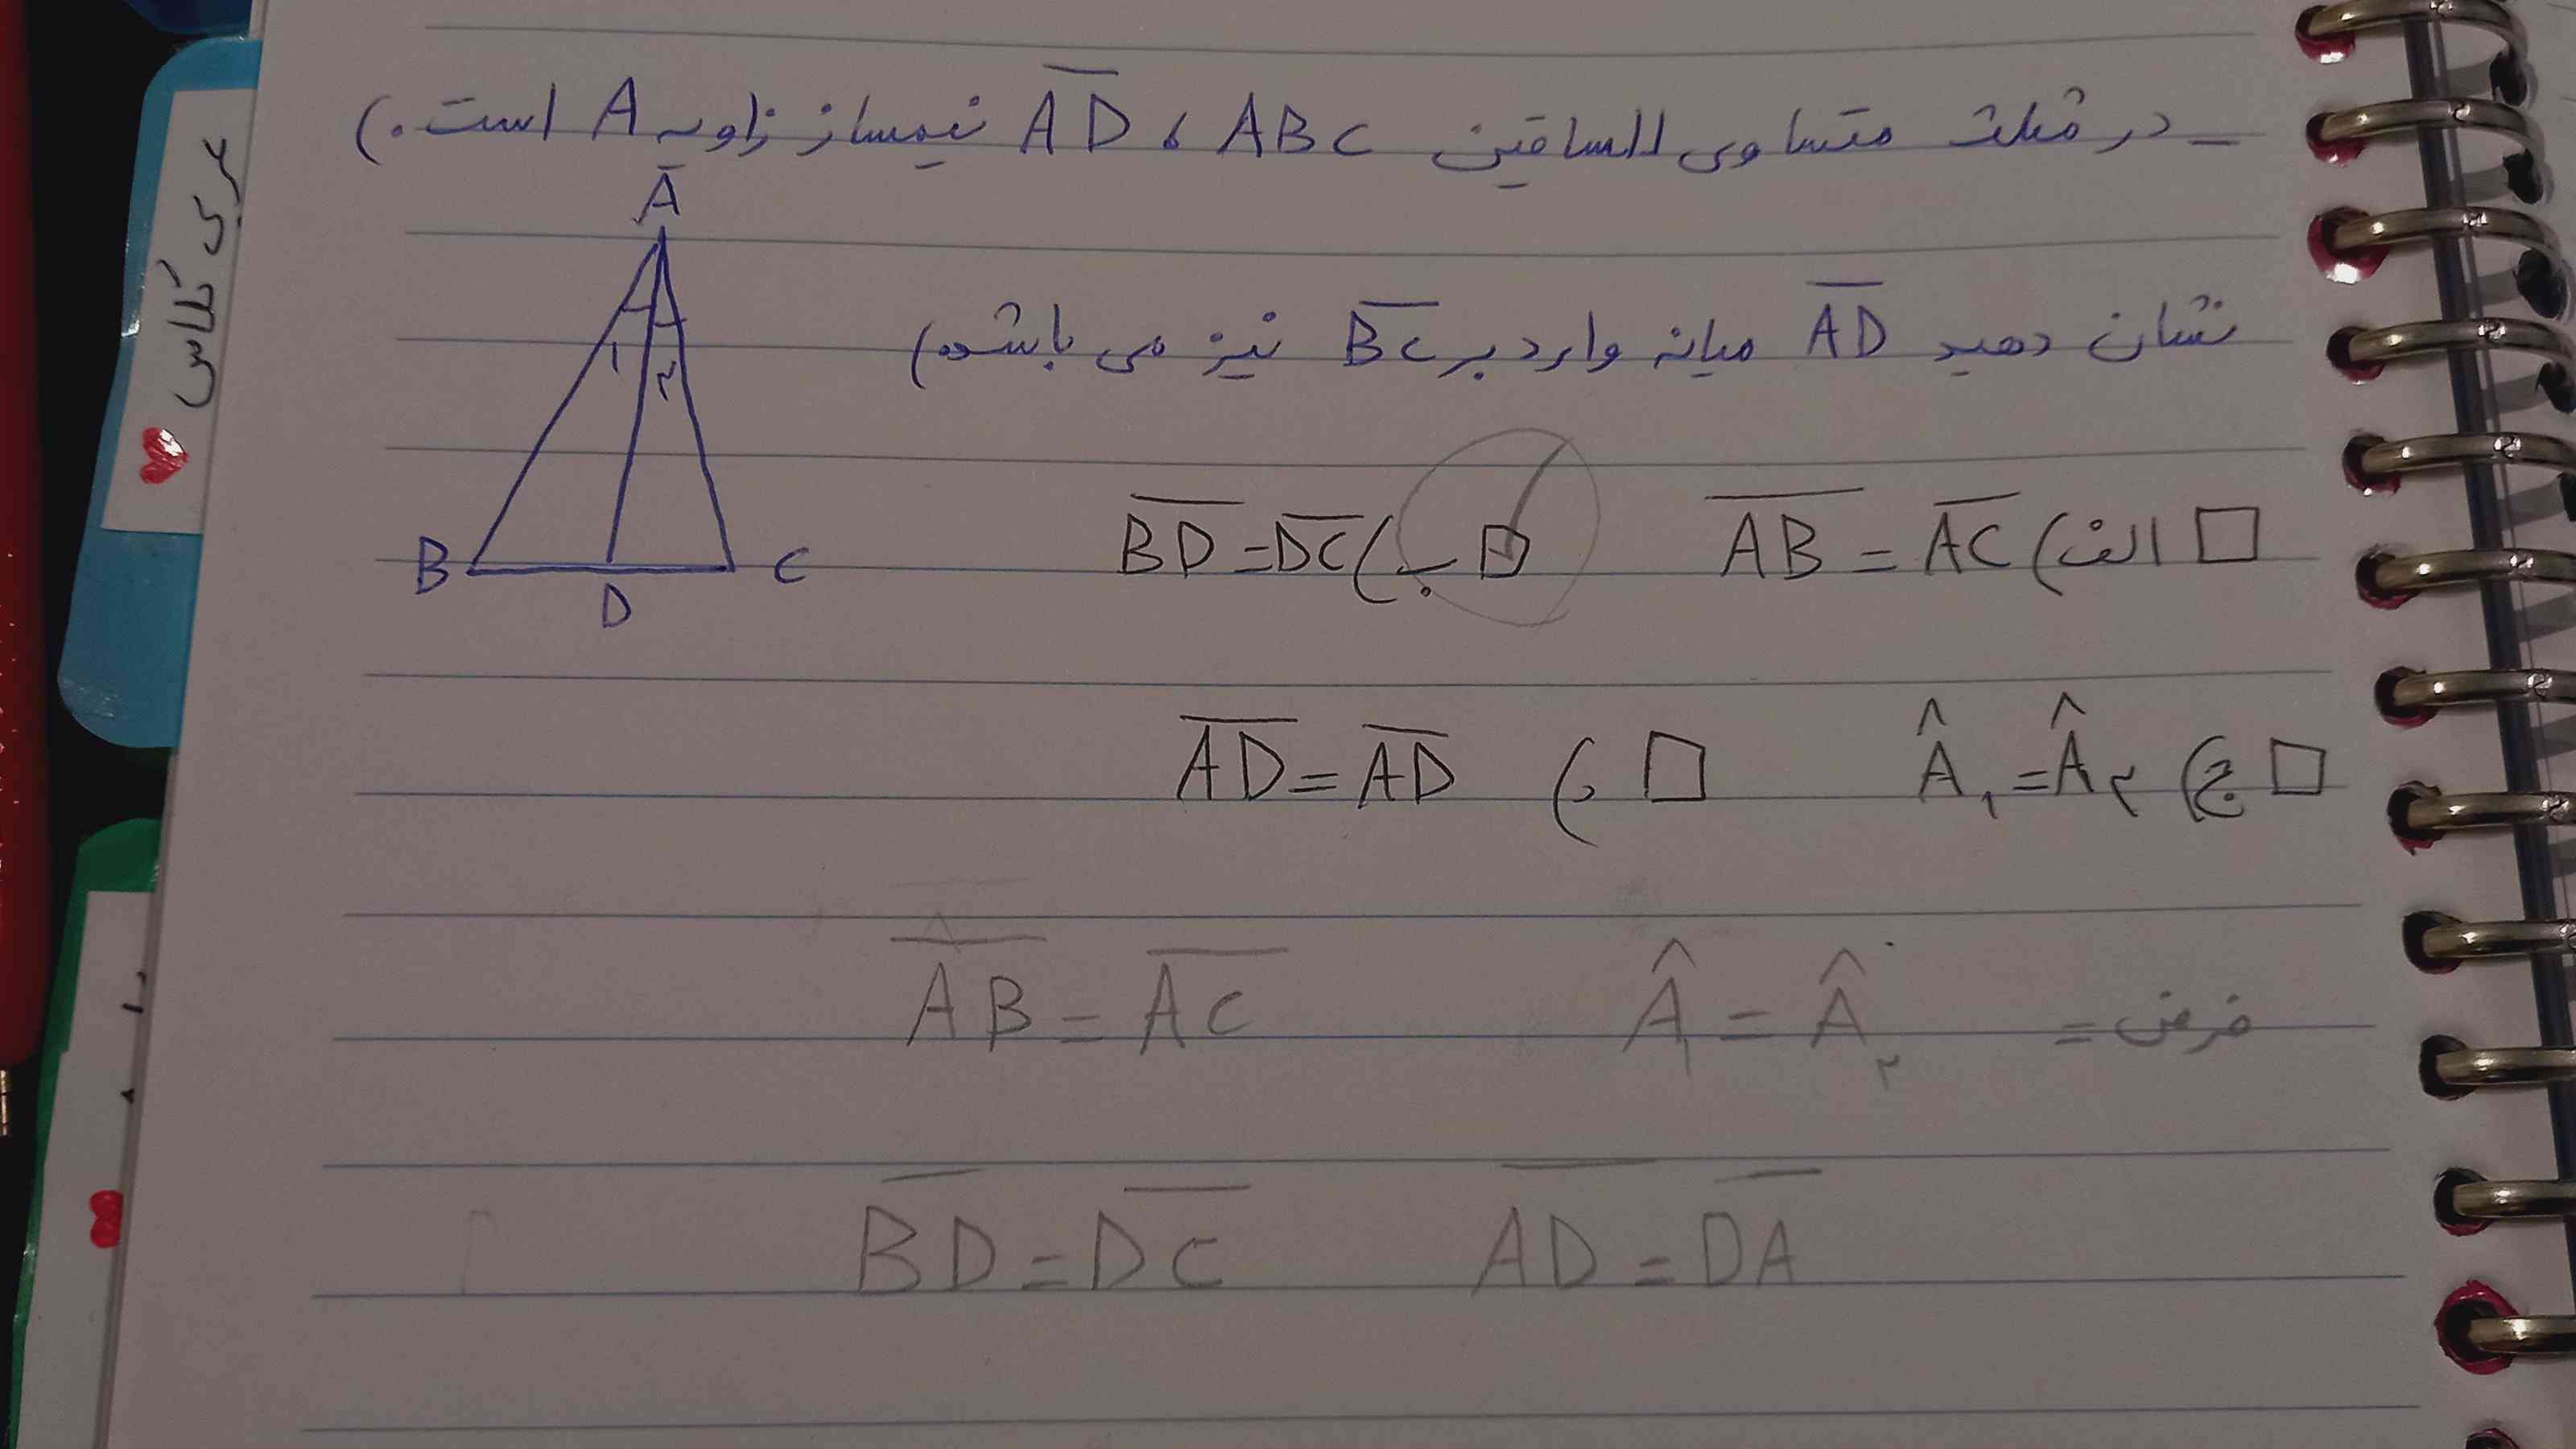 ـ در مثلث متساوی الساقین ABC ، AD نیمساز زاویه A است.)
نشان دهید AD میانه وارد بر BC نیز می باشد.)
A
۱ ۲
B D C
□ الف) AB = AC □ ب) BD = DC
□ ج) Â₁ = Â₂ □ د) AD = AD
فرض = Â₁ = Â₂ AB = AC
AD = DA BD = DC
عربی کلاس